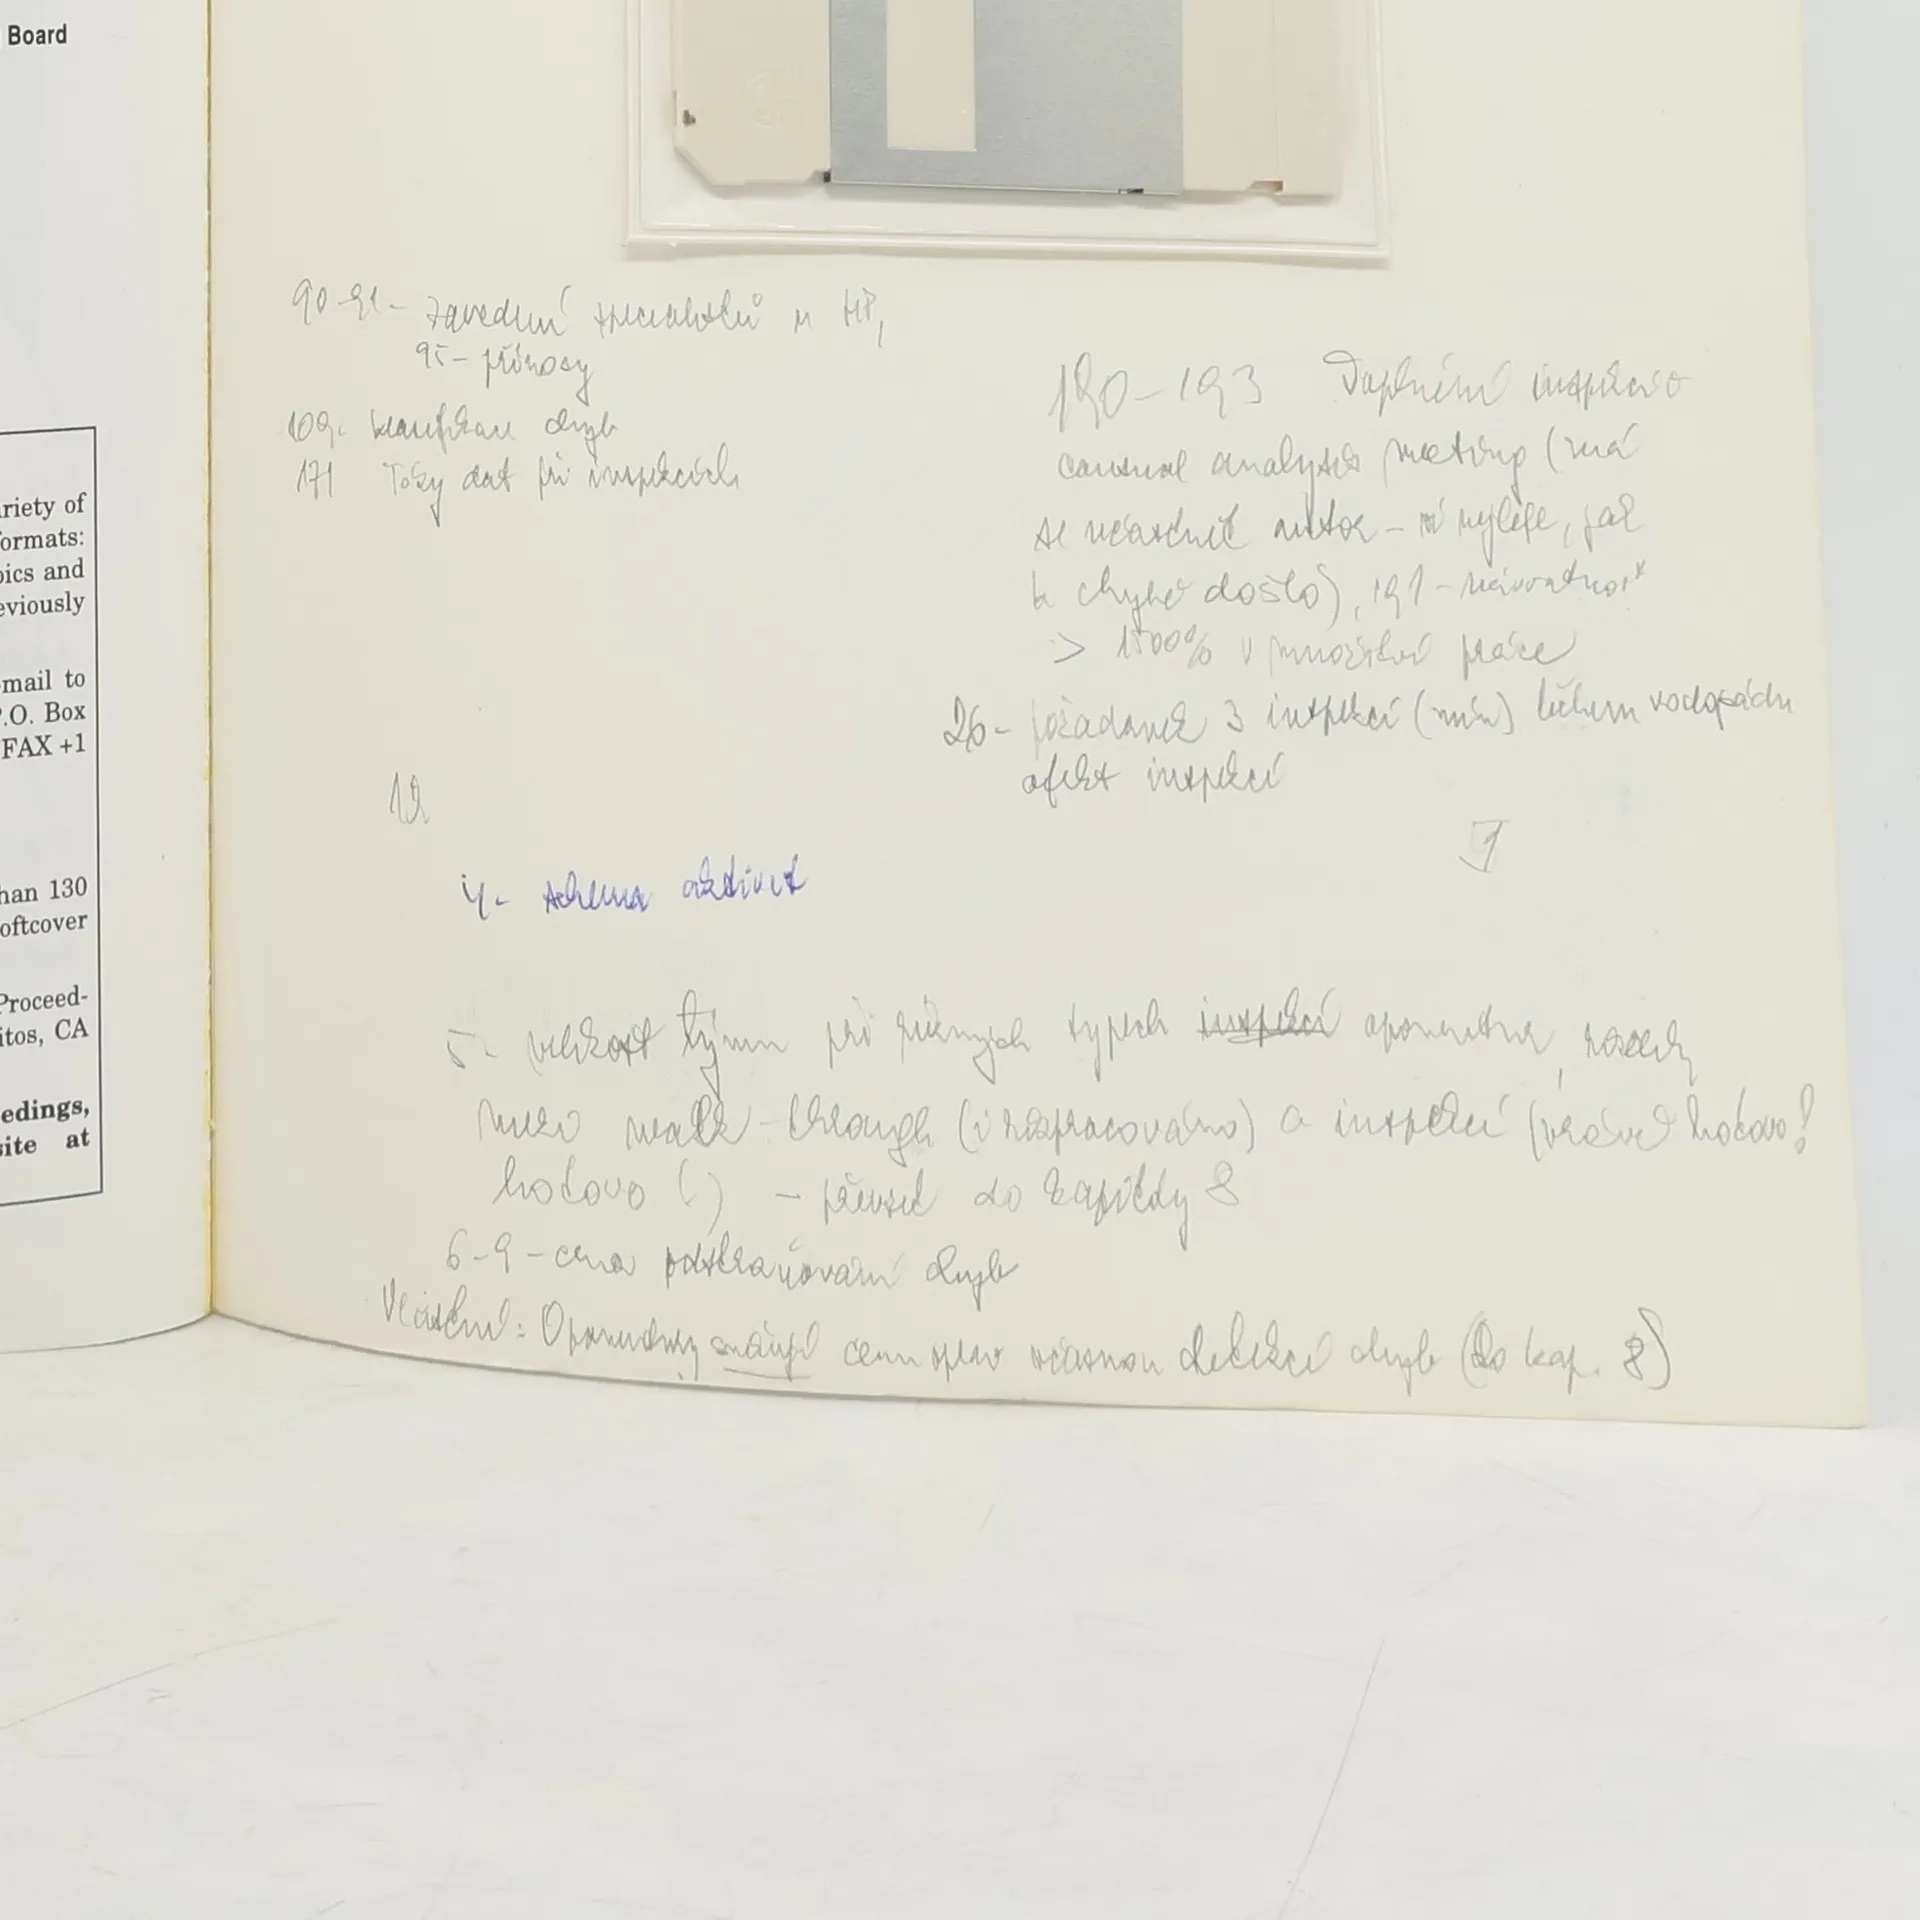 Board
riety of
ormats:
pics and
eviously
mail to
P.O. Box
FAX +1
han 130
oftcover
Proceed-
itos, CA
edings,
site at
90-91- zavedení specialistů u HP,
95- přínosy
109. klasifikace chyb
171 Toky dat při inspekcích
190-193 Doplnění inspekcí o
causal analysis meeting (má
se účastnit autor - ví nejlépe, jak
k chybě došlo), 191 - návratnost
> 1500% v množství práce
26- požadavek 3 inspekcí (min) během vodopádu
efekt inspekcí
12
4- schema aktivit
5- velikost týmu při různých typech inspekcí oponentur, rozdíly
mezi walk-through (i rozpracováno) a inspekcí (hotovo!
hotovo (!) - převzít do kapitoly 8
6-9 - cena odstraňování chyb
Vlastně: Oponentury snižují cenu oprav včasnou detekcí chyb (do kap. 8)